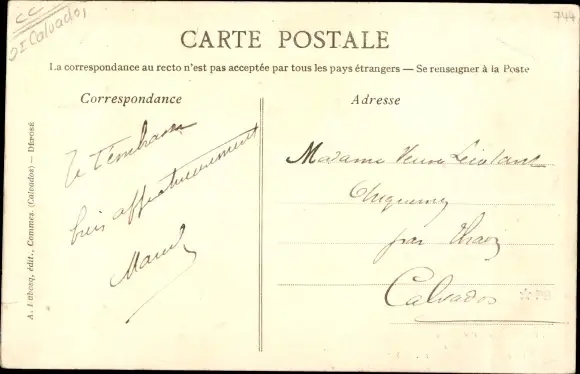 CC
Calvados
744
CARTE POSTALE
La correspondance au recto n'est pas acceptée par tous les pays étrangers — Se renseigner à la Poste
Correspondance
Adresse
Je t'embrasse
bien affectueusement
Marcel
Madame Veuve
par
Calvados
édit., Commes. (Calvados). — DÉPOSÉ